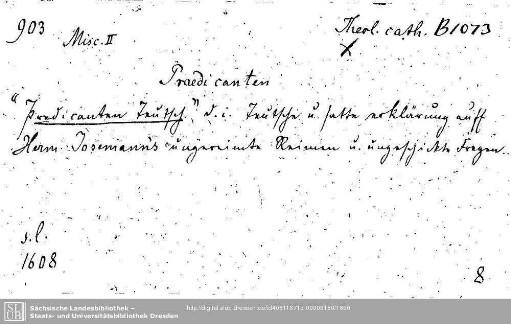 903
Misc. II
Theol. cath. B 1073
Praedicanten
"Predicanten Teutsch," d. i. Teutsche u. satte erklärung auff
Herm. Josemann's ungereimte Reimen u. ungeschickte Fragen.
s. l.
1608
8
SLUB
Sächsische Landesbibliothek –
Staats- und Universitätsbibliothek Dresden